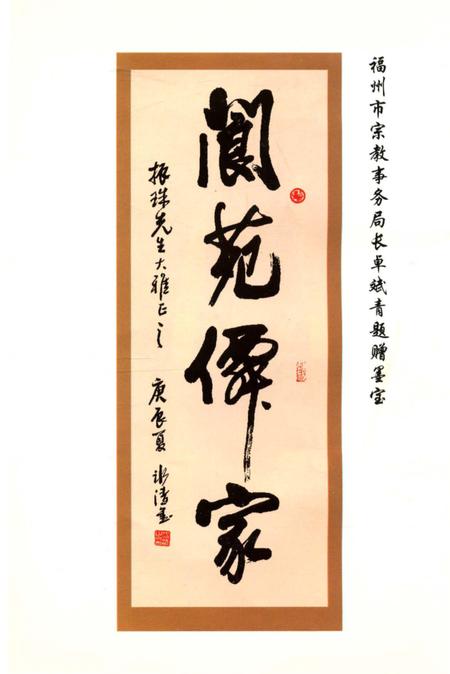 福州市宗教事务局长卓斌青题赠墨宝
阆苑僊家
振珠先生大雅正之
庚辰夏